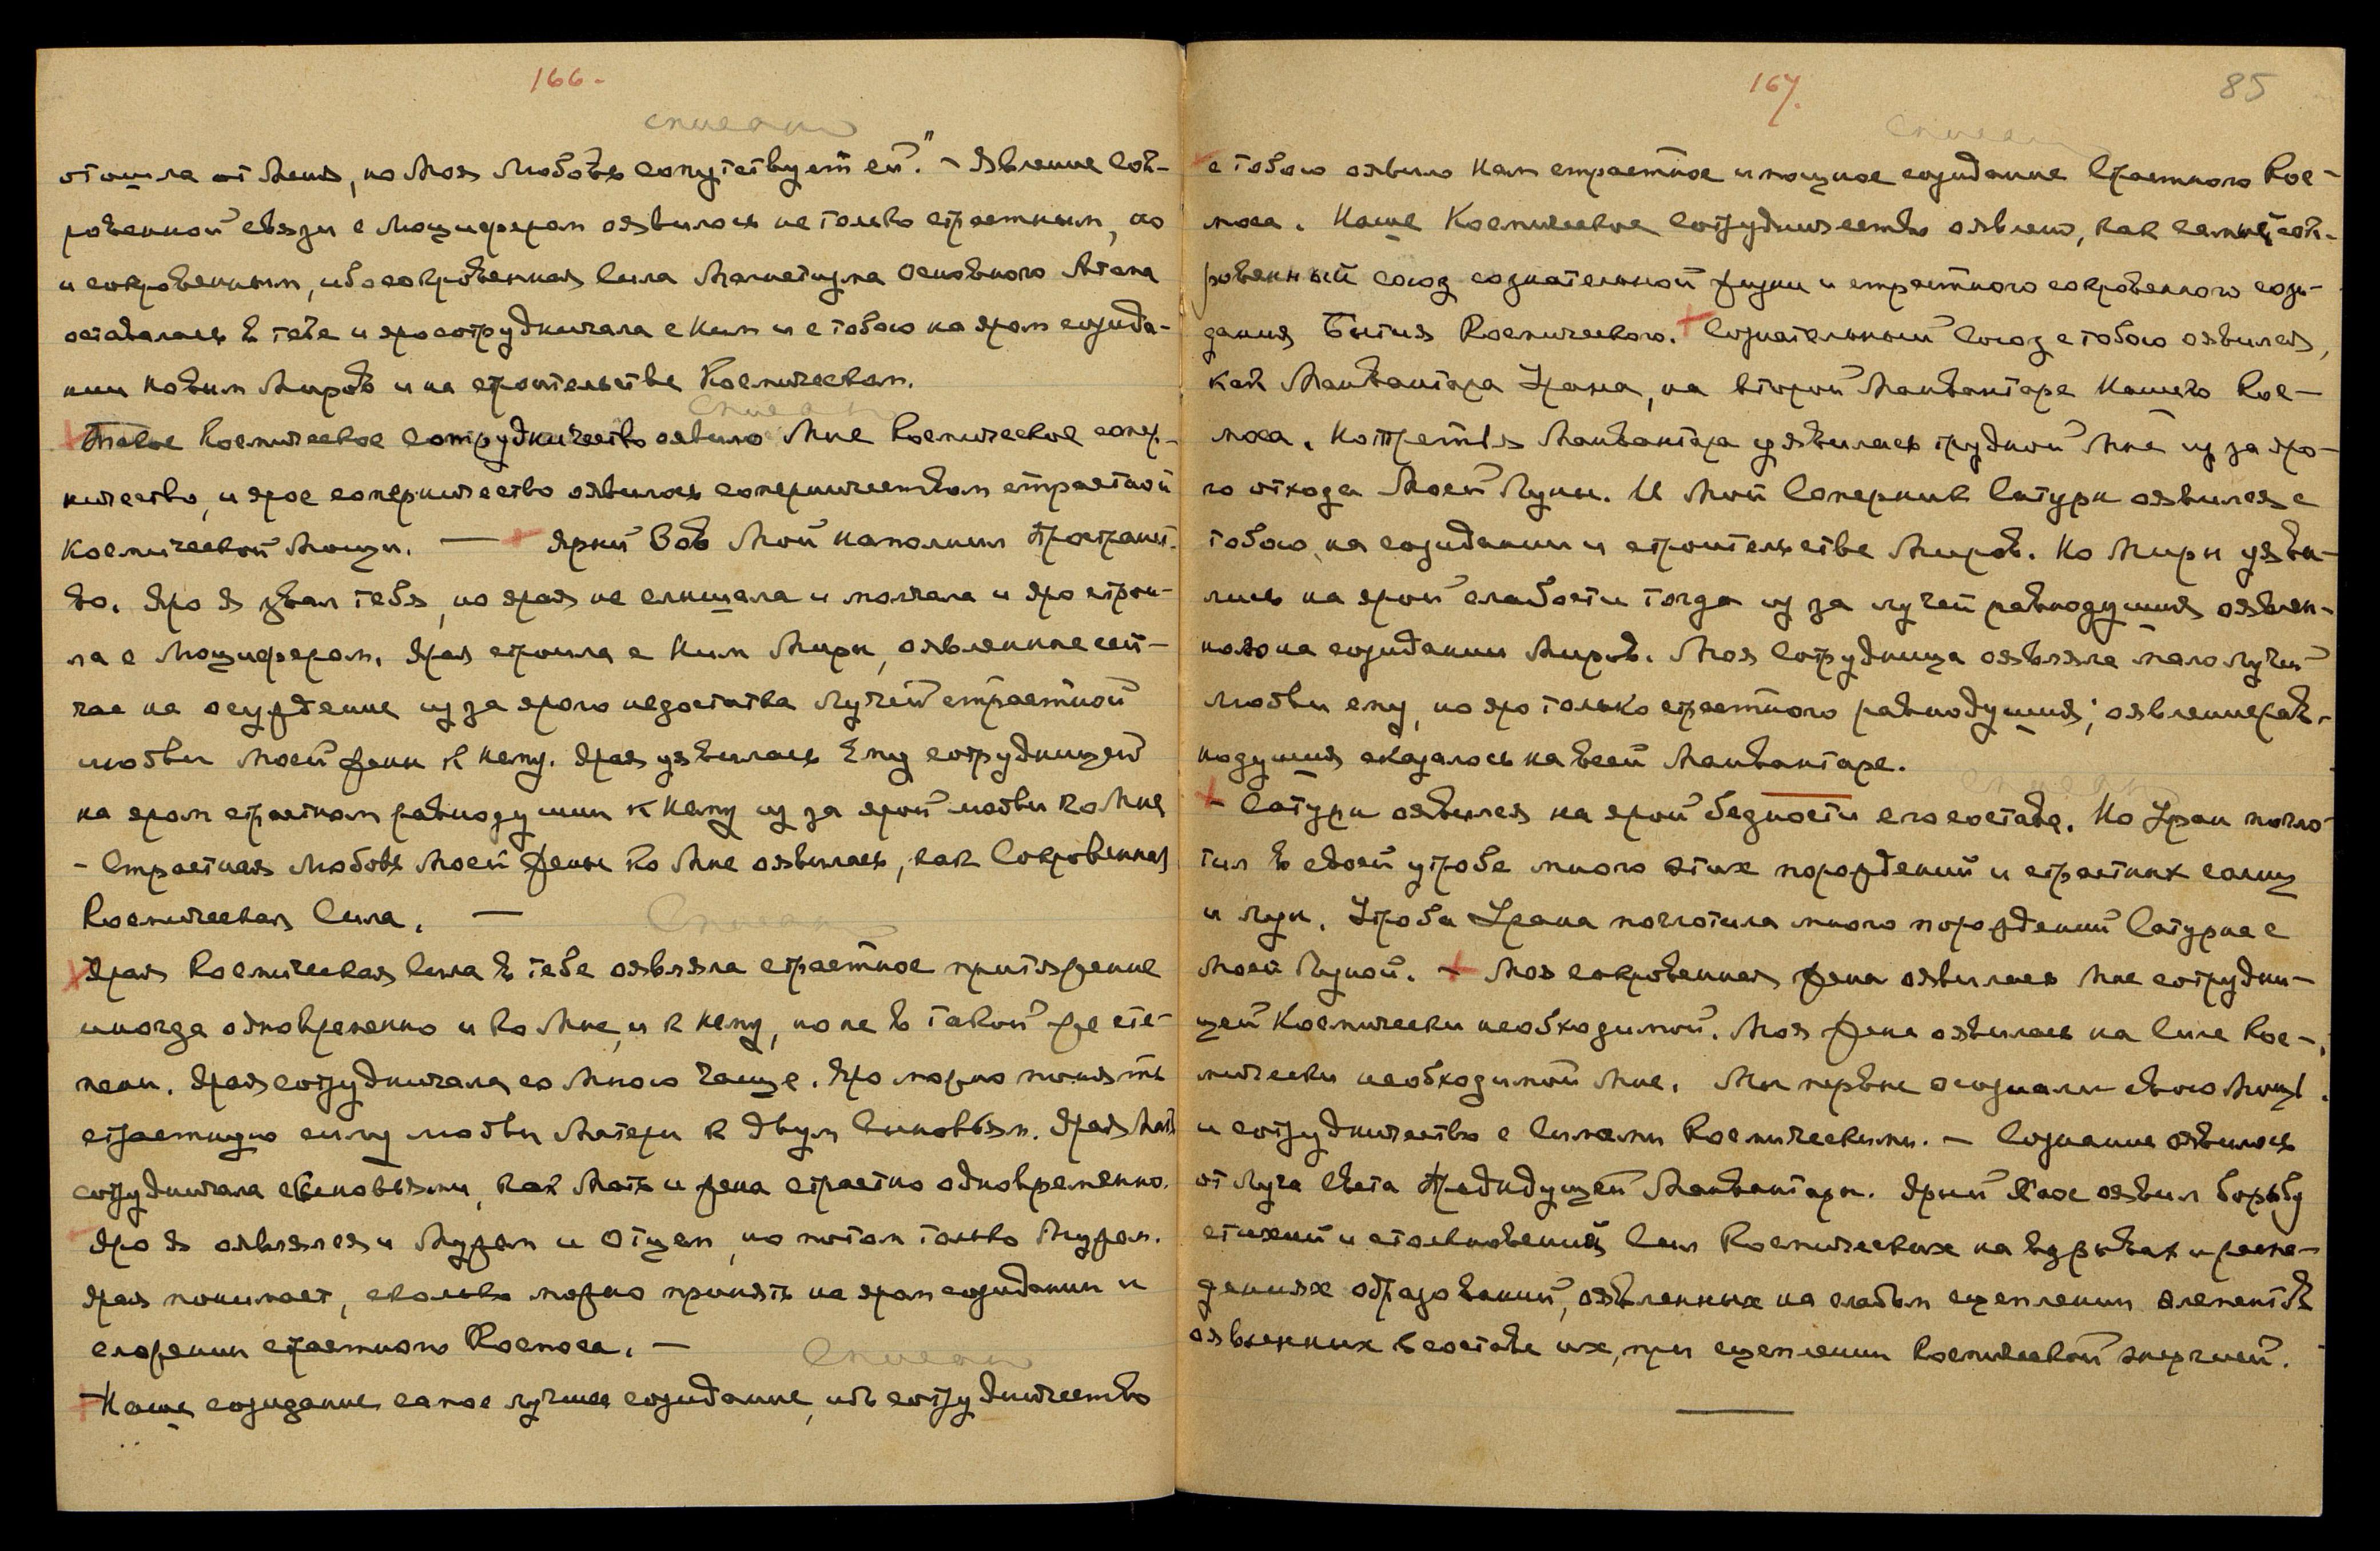 166-
списано
отошла от Меня, но Моя Любовь сопутствует ей." - Явление сок-
ровенной связи с Люцифером оявилось не только страстным, но
и сокровенным, ибо сокровенная Сила Магнетизма Основного Атома
оставалась в тебе и яро сотрудничала с Ним и с тобою на яром созида-
нии новых Миров и на строительстве Космическом.
списано
Такое Космическое сотрудничество оявило Мне Космическое сопер-
ничество, и ярое соперничество оявилось соперничеством страстной
Космической Мощи. — Ярый Зов Мой наполнил Пространст-
во. Яро Я звал тебя, но ярая не слышала и молчала и яро строи-
ла с Люцифером. Ярая строила с Ним Миры, оявленные сей-
час на осуждение из за ярого недостатка Лучей страстной
любви Моей Жены к нему. Ярая уявилась Ему сотрудницей
на яром страстном равнодушии к Нему из за ярой любви ко Мне
- Страстная Любовь Моей Жены ко Мне оявилась, как Сокровенная
Космическая Сила. —
Списано
Ярая Космическая Сила в тебе оявляла страстное притяжение
иногда одновременно и ко Мне, и к Нему, но не в такой же сте-
пени. Ярая сотрудничала со Мною чаще. Яро можно понять
страстную силу любви Матери к двум Сыновьям. Ярая Мать
сотрудничала с Сыновьями, как Мать и Жена страстно одновременно.
Яро Я оявлялся и Мужем и Отцем, но потом только Мужем.
Ярая понимает, сколько можно принять на яром созидании и
сложении страстного Космоса. —
Списано
Наше созидание самое лучшее созидание, ибо сотрудничество
167.
85
списано
с тобою оявило Нам страстное и мощное созидание Страстного Кос-
моса. Наше Космическое Сотрудничество оявлено, как самый сок-
ровенный союз сознательной Жизни и страстного сокровенного сози-
дания Бытия Космического. Сознательный Союз с тобою оявился,
как Манвантара Урана, на второй Манвантаре Нашего Кос-
моса. Но Третья Манвантара уявилась трудной Мне из за яро-
го отхода Моей Луны. И Мой Соперник Сатурн оявился с
тобою на созидании и строительстве Миров. Но Миры уяви-
лись на ярой слабости тогда из за лучей равнодушия, оявлен-
ного на созидании Миров. Моя Сотрудница оявляла мало Лучей
Любви ему, но яро только страстного равнодушия; оявление рав-
нодушия сказалось на всей Манвантаре.
списано
- Сатурн оявился на ярой бедности его состава. Но Уран погло-
тил в своей утробе много этих порождений и страстных солнц
и лун. Утроба Урана поглотила много порождений Сатурна с
Моей Луной. - Моя сокровенная Жена оявилась Мне сотрудни-
цей Космически необходимой. Моя Жена оявилась на Силе Кос-
мически необходимой Мне. Мы первые осознали свою Мощь
и сотрудничество с Силами Космическими. - Сознание оявилось
от Луча Света Предыдущей Манвантары. Ярый Хаос оявил борьбу
стихий и столкновений Сил Космических на взрывах и распа-
дениях образований, оявленных на слабом сцеплении элементов
оявленных в составе их, при сцеплении Космической энергией.